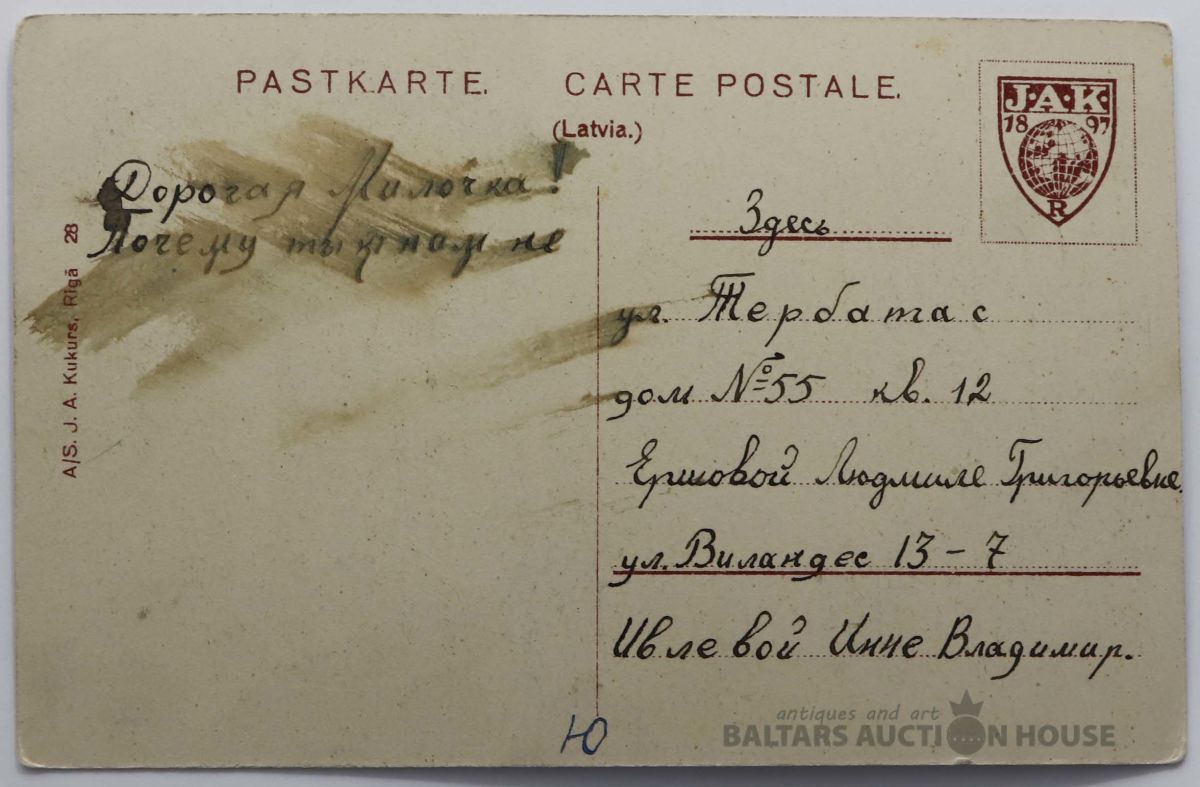 PASTKARTE. CARTE POSTALE.
(Latvia.)
J·A·K
18 97
R
Дорогая Милочка!
Почему ты к нам не
A/S. J. A. Kukurs, Rīgā 28
Здесь
ул. Тербатас
дом № 55 кв. 12
Ершовой Людмиле Григорьевне.
ул. Виландес 13 – 7
Ивлевой Инне Владимир.
Ю
antiques and art
BALTARS AUCTION HOUSE